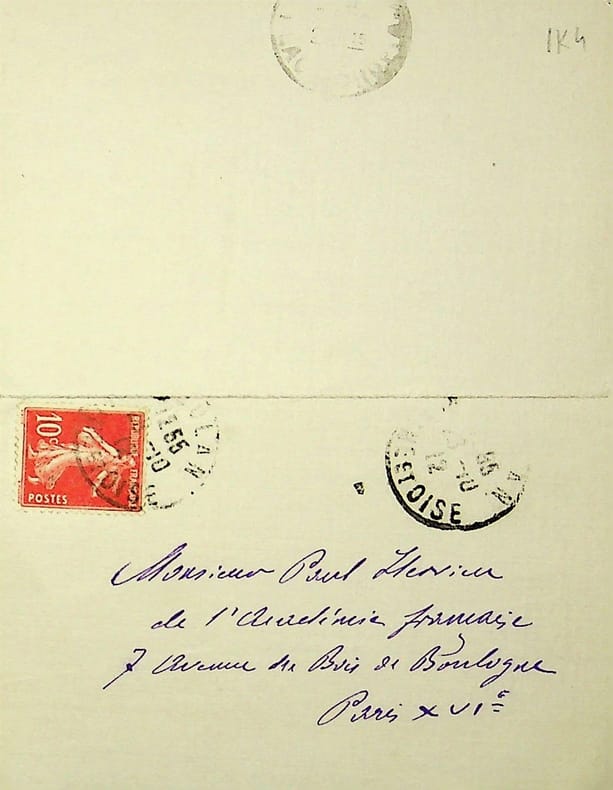 1K4
10c
REPUBLIQUE FRANÇAISE
POSTES
ULAN
55
10
55
12 10
SSTOISE
Monsieur Paul Hervieu
de l'Académie française
7 Avenue du Bois de Boulogne
Paris XVIe